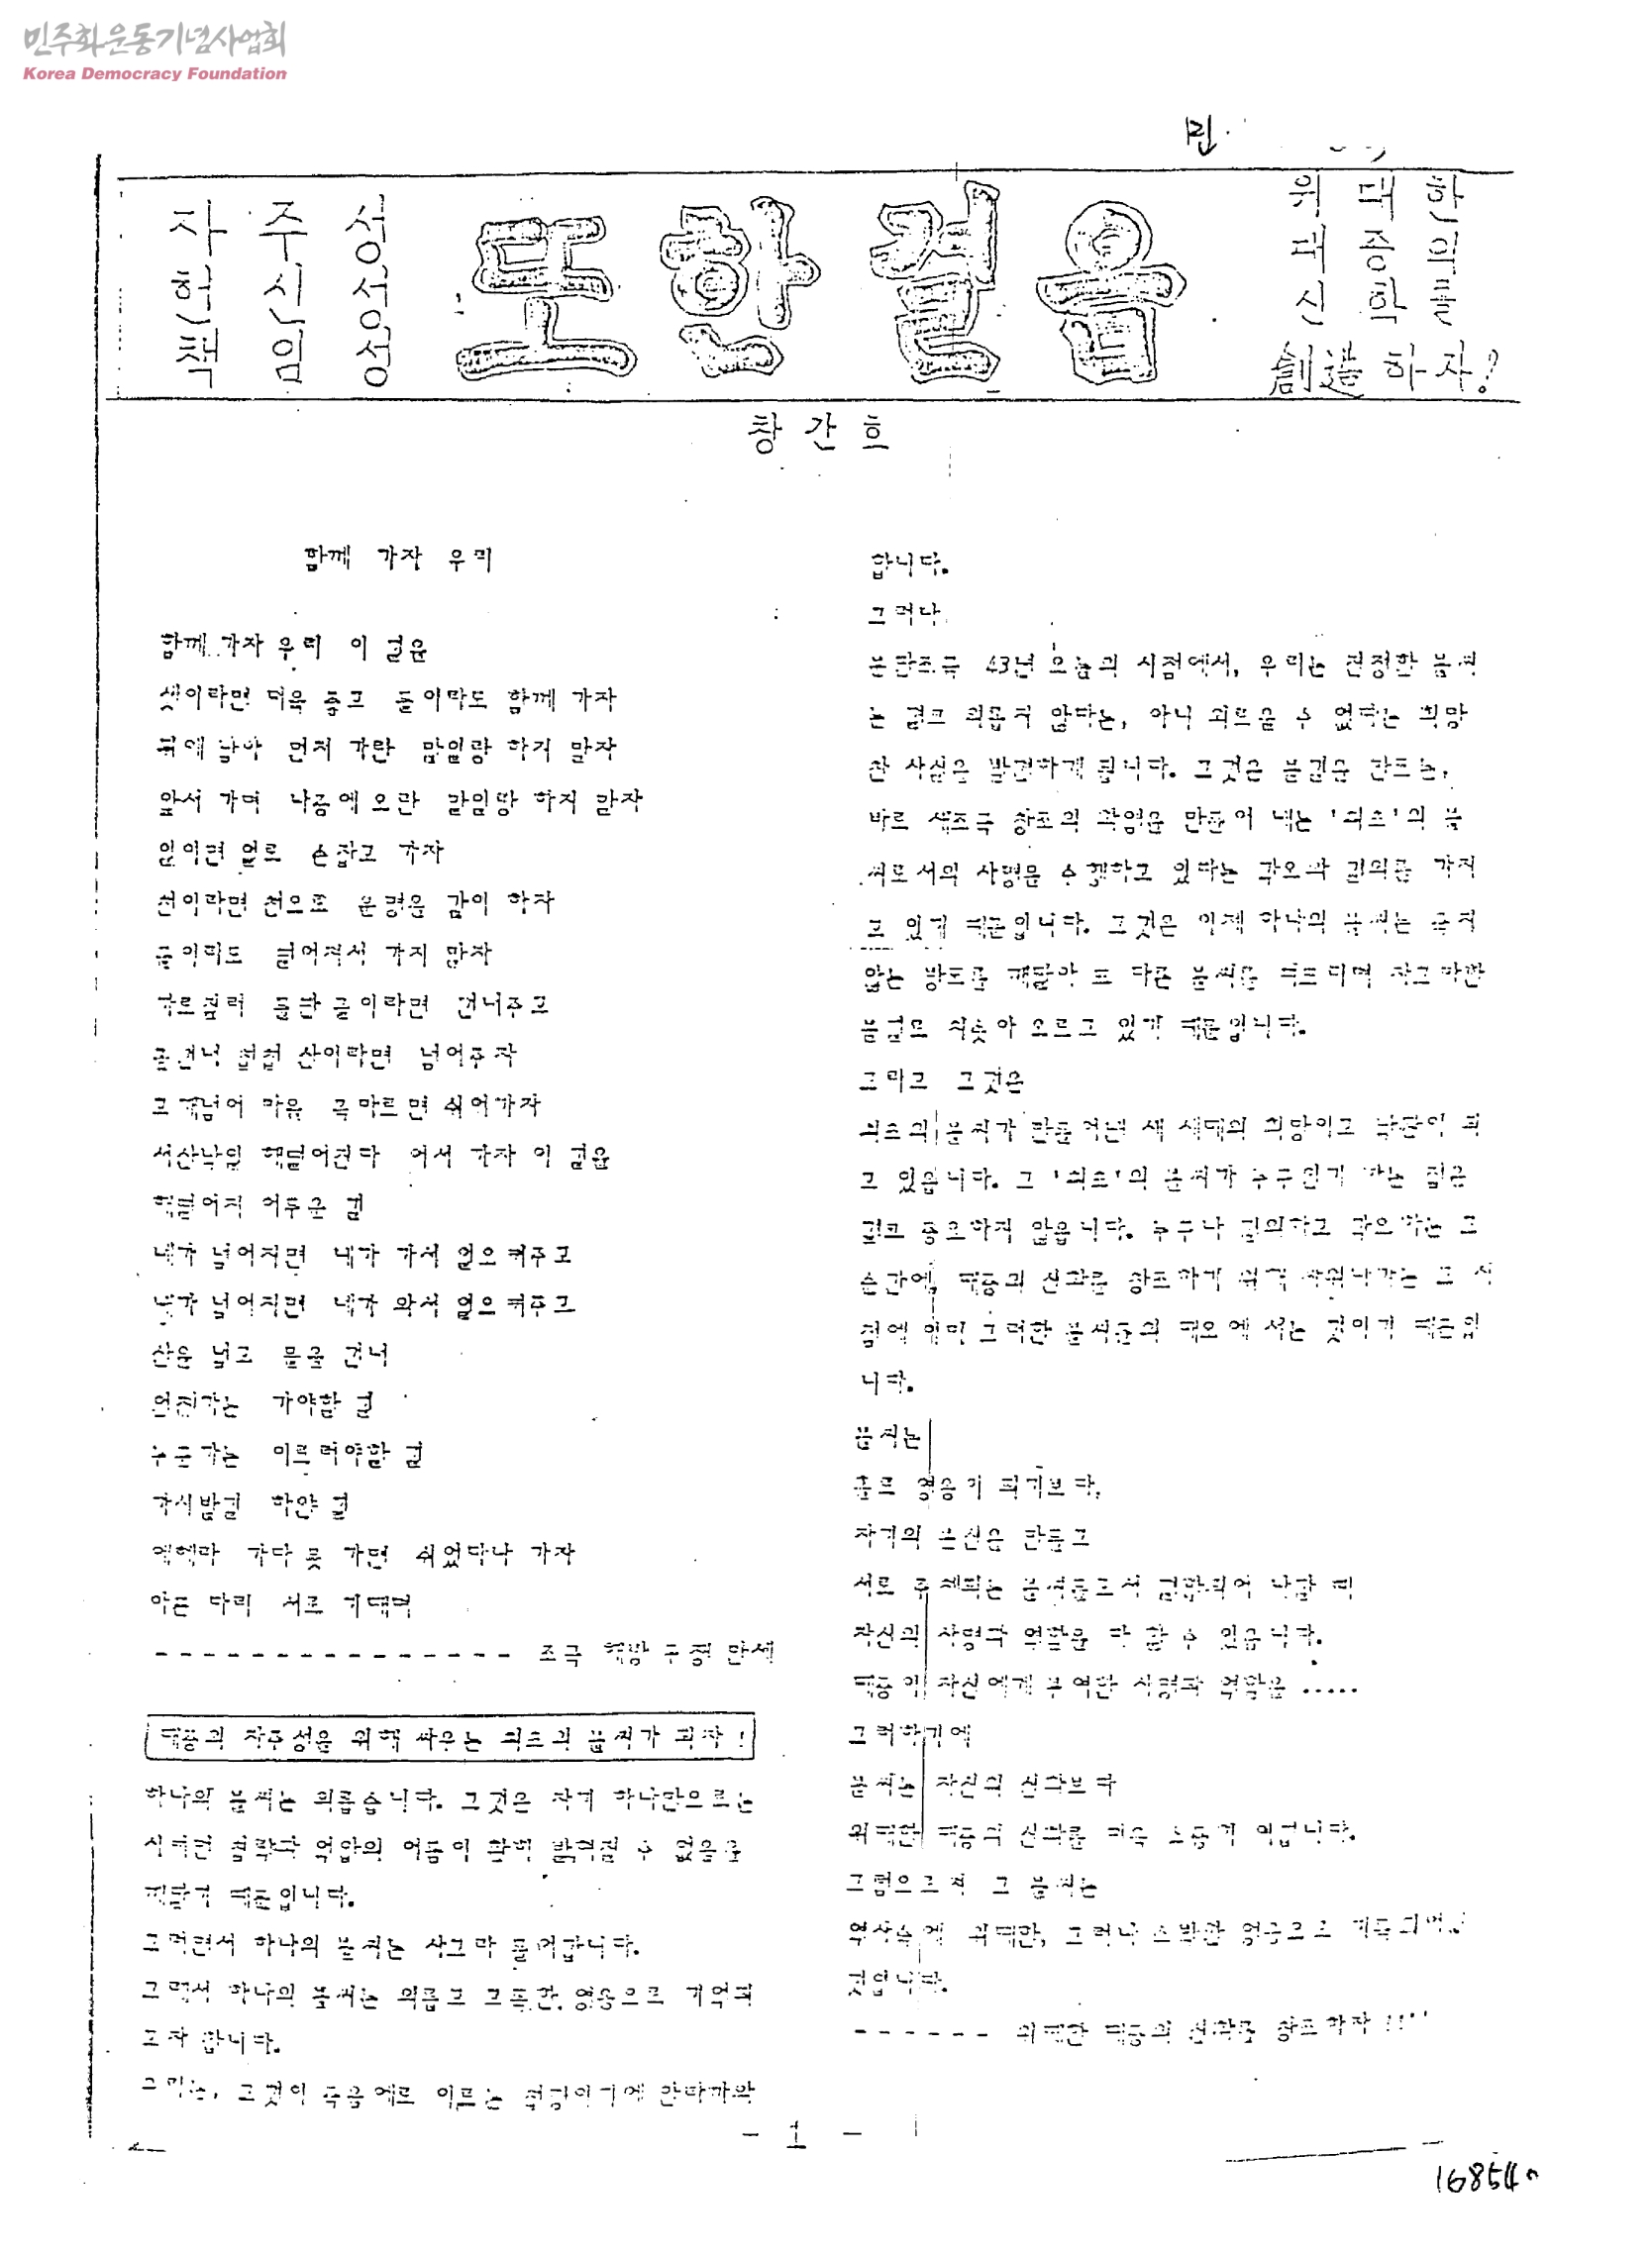 민주화운동기념사업회
Korea Democracy Foundation
민
자 주 성
헌 신 선
책 임 성
또 한 걸음
위 대 한
대 중 의
신 화 를
創造 하 자!
창 간 호
함께 가자 우리
함께 가자 우리 이 길을
셋이라면 더욱 좋고 둘이라도 함께 가자
뒤에 남아 먼저 가란 말일랑 하지 말자
앞서 가며 나중에 오란 말일랑 하지 말자
일이면 일로 손잡고 가자
천이라면 천으로 운명을 같이 하자
둘이라도 떨어져서 가지 말자
가로질러 들판 물이라면 건너주고
물건너 첩첩 산이라면 넘어주자
고개넘어 마을 목마르면 쉬어가자
서산낙일 해떨어진다 어서 가자 이 길을
해떨어져 어두운 길
네가 넘어지면 내가 가서 일으켜주고
내가 넘어지면 네가 와서 일으켜주고
산을 넘고 물을 건너
언젠가는 가야할 길
누군가는 이르러야할 길
가시밭길 하얀 길
에헤라 가다 못 가면 쉬었다나 가자
아픈 다리 서로 기대며
- - - - - - - - - - - - - - - 조국 해방 투쟁 만세
대중의 자주성을 위해 싸우는 최초의 불씨가 되자 !
하나의 불씨는 외롭습니다. 그것은 자기 하나만으로는
시커먼 침략과 억압의 어둠이 환히 밝혀질 수 없음을
깨닫기 때문입니다.
그러면서 하나의 불씨는 사그라 들어갑니다.
그래서 하나의 불씨는 외롭고 고독한 영웅으로 기억되
고자 합니다.
그리는, 그것이 죽음에로 이르는 첩경이기에 안타까와
합니다.
그러나
분단조국 43년 오늘의 시점에서, 우리는 진정한 불씨
는 결코 외롭지 않다는, 아니 외로울 수 없다는 희망
찬 사실을 발견하게 됩니다. 그것은 불길을 만드는,
바로 새조국 창조의 화염을 만들어 내는 '최초'의 불
씨로서의 사명을 수행하고 있다는 각오와 결의를 가지
고 있기 때문입니다. 그것은 이제 하나의 불씨는 죽지
않는 방도를 깨달아 또 다른 불씨를 퍼뜨리며 자그마한
불길로 치솟아 오르고 있기 때문입니다.
그리고 그것은
최초의 불씨가 만들어낸 새 시대의 희망이고 낙관이 되
고 있읍니다. 그 '최초'의 불씨가 누구인가 하는 점은
결코 중요하지 않읍니다. 누구나 결의하고 각오하는 그
순간에, 대중의 신화를 창조하기 위해 싸워나가는 그 시
점에 이미 그러한 불씨들의 대오에 서는 것이기 때문입
니다.
불씨는
홀로 영웅이 되기보다,
자기의 분신을 만들고
서로 주체되는 불씨들로서 결합되어 나갈 때
자신의 사명과 역할을 다 할 수 있읍니다.
대중이 자신에게 부여한 사명과 역할을 .....
그러하기에
불씨는 자신의 신화보다
위대한 대중의 신화를 더욱 소중히 여깁니다.
그럼으로써 그 불씨는
역사속에 위대한, 그러나 소박한 영웅으로 기록되어질
것입니다.
- - - - - - 위대한 대중의 신화를 창조하자 !!''
- 1 -
168540